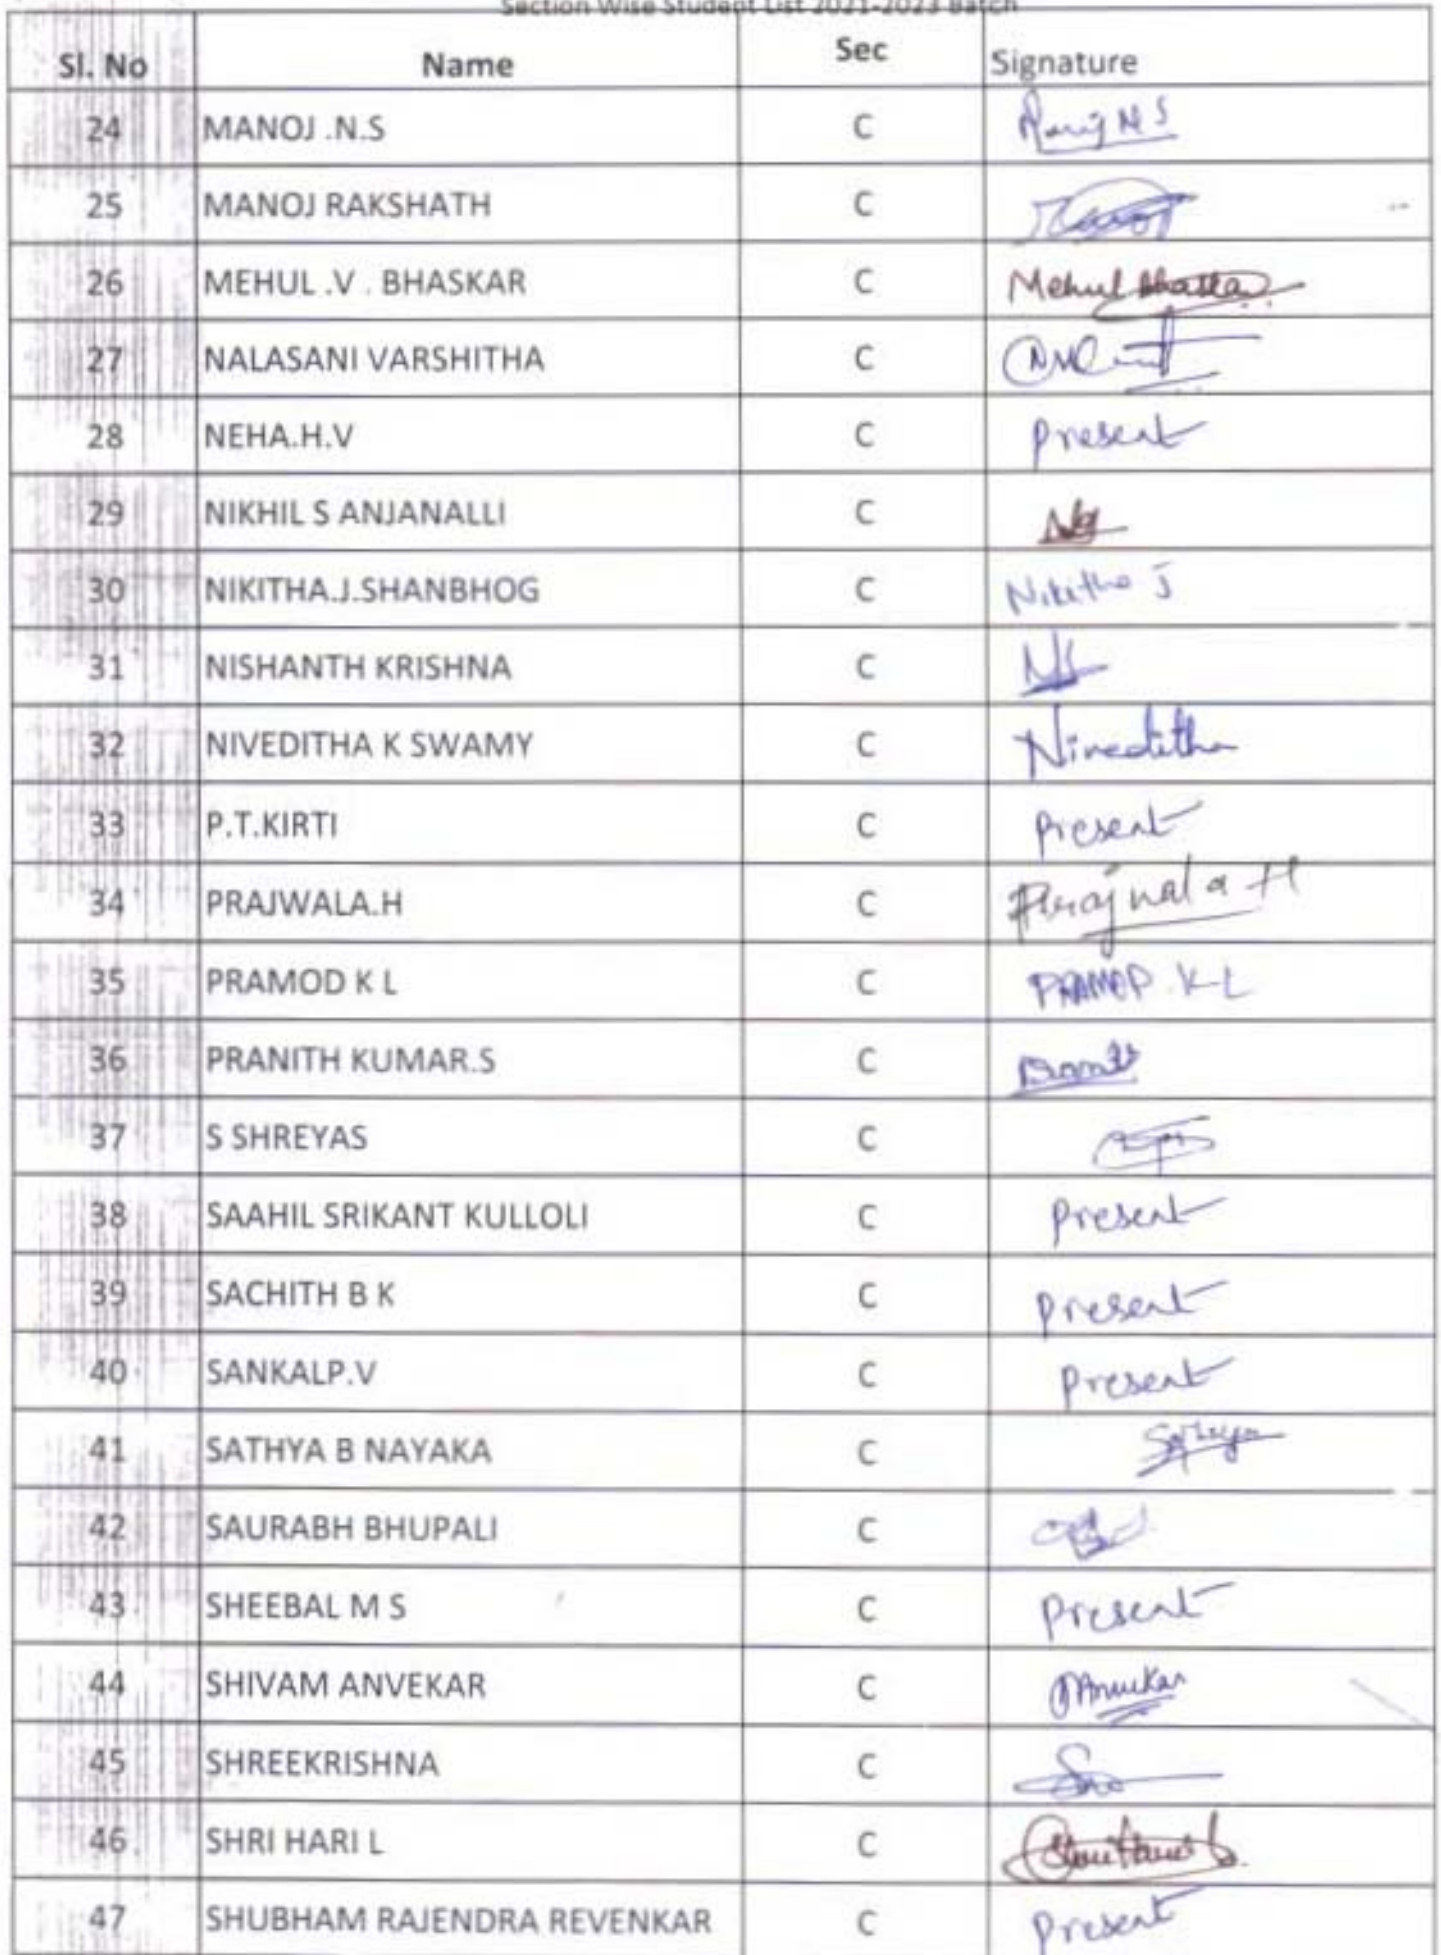 Section Wise Student List 2021-2023 Batch
Sl. No Name Sec Signature
24 MANOJ .N.S C Manoj N S
25 MANOJ RAKSHATH C
26 MEHUL .V . BHASKAR C Mehul Bhaskar
27 NALASANI VARSHITHA C
28 NEHA.H.V C Present
29 NIKHIL S ANJANALLI C
30 NIKITHA.J.SHANBHOG C Nikitha J
31 NISHANTH KRISHNA C
32 NIVEDITHA K SWAMY C Niveditha
33 P.T.KIRTI C Present
34 PRAJWALA.H C Prajwala H
35 PRAMOD K L C PRAMOD K-L
36 PRANITH KUMAR.S C
37 S SHREYAS C
38 SAAHIL SRIKANT KULLOLI C Present
39 SACHITH B K C Present
40 SANKALP.V C Present
41 SATHYA B NAYAKA C Sathya
42 SAURABH BHUPALI C
43 SHEEBAL M S C Present
44 SHIVAM ANVEKAR C
45 SHREEKRISHNA C
46 SHRI HARI L C
47 SHUBHAM RAJENDRA REVENKAR C Present